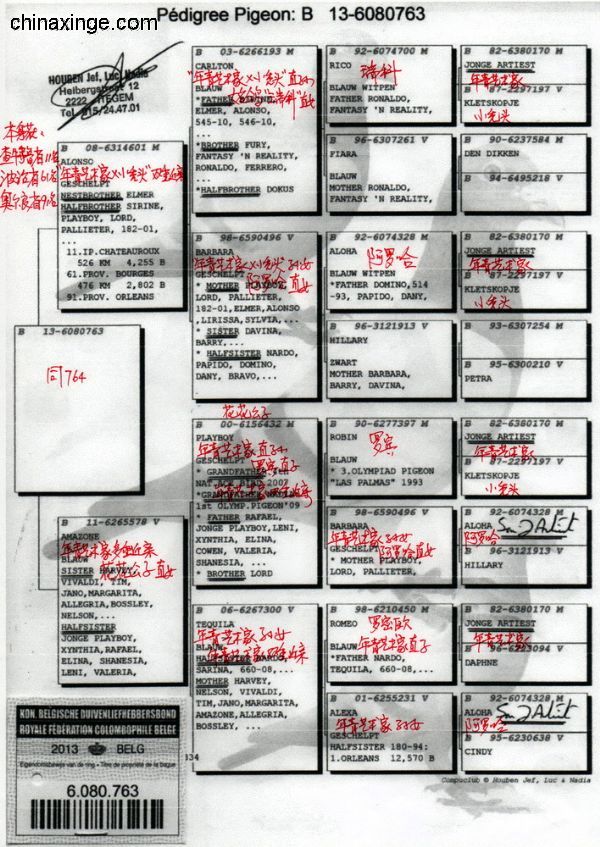 chinaxinge.com
Pédigree Pigeon: B 13-6080763
HOUBEN Jef, Luc, Nadia
Heibergstraat 12
2222 ITEGEM
Tel. 015/24.47.01
B 08-6314601 M
ALONSO
GESCHELPT
NESTBROTHER ELMER
HALFBROTHER SIRINE,
PLAYBOY, LORD,
PALLIETER, 182-01,
...
11.IP.CHATEAUROUX
526 KM 4,255 B
61.PROV. BOURGES
476 KM 2,802 B
91.PROV. ORLEANS
B 13-6080763
同764
B 11-6265578 V
AMAZONE
BLAUW
SISTER HARVEY,
花花公子直女
VIVALDI, TIM,
JANO,MARGARITA,
ALLEGRIA,BOSSLEY,
NELSON,...
HALFSISTER
JONGE PLAYBOY,
XYNTHIA,RAFAEL,
ELINA, SHANESIA,
LENI, VALERIA,
B 03-6266193 M
CARLTON
BLAUW
ELMER, ALONSO,
545-10, 546-10,
...
*BROTHER FURY,
FANTASY 'N REALITY,
RONALDO, FERRERO,
...
*HALFBROTHER DOKUS
B 98-6590496 V
BARBARA
GESCHELPT
阿罗哈直女
* MOTHER PLAYBOY,
LORD, PALLIETER,
182-01,ELMER,ALONSO
,LIRISSA,SYLVIA,...
* SISTER DAVINA,
BARRY,...
* HALFSISTER NARDO,
PAPIDO, DOMINO,
DANY, BRAVO,...
花花公子
B 00-6156432 M
PLAYBOY
GESCHELPT
* GRANDFATHER
罗宾直子
NAT.ACE BIRD 2007
*GRANDFATHER
1st OLYMP.PIGEON'09
* FATHER RAFAEL,
JONGE PLAYBOY,LENI,
XYNTHIA, ELINA,
COWEN, VALERIA,
SHANESIA, ...
* BROTHER LORD
B 06-6267300 V
TEQUILA
BLAUW
HALFSISTER NARDO,
SARINA, 660-08,...
MOTHER HARVEY,
NELSON, VIVALDI,
TIM,JANO,MARGARITA,
AMAZONE,ALLEGRIA,
BOSSLEY,...
B 92-6074700 M
RICO
瑞科
BLAUW WITPEN
FATHER RONALDO,
FANTASY 'N REALITY,
B 96-6307261 V
FIARA
BLAUW
MOTHER RONALDO,
FANTASY 'N REALITY,
B 92-6074328 M
ALOHA
阿罗哈
BLAUW WITPEN
*FATHER DOMINO,514
-93, PAPIDO, DANY,
B 96-3121913 V
HILLARY
ZWART
MOTHER BARBARA,
BARRY, DAVINA,
B 90-6277397 M
ROBIN
罗宾
BLAUW
* 3.OLYMPIAD PIGEON
"LAS PALMAS" 1993
B 98-6590496 V
BARBARA
GESCHELPT
阿罗哈直女
* MOTHER PLAYBOY,
LORD, PALLIETER,
B 98-6210450 M
ROMEO
罗密欧
BLAUW
年青艺术家直子
*FATHER NARDO,
TEQUILA, 660-08,...
B 01-6255231 V
ALEXA
年青艺术家孙女
GESCHELPT
HALFSISTER 180-94:
1.ORLEANS 12,570 B
B 82-6380170 M
JONGE ARTIEST
年青艺术家
B 87-2297197 V
KLETSKOPJE
小秃头
B 90-6237584 M
DEN DIKKEN
B 94-6495218 V
B 82-6380170 M
JONGE ARTIEST
年青艺术家
B 87-2297197 V
KLETSKOPJE
小秃头
B 93-6307254 M
B 95-6300210 V
PETRA
B 82-6380170 M
JONGE ARTIEST
年青艺术家
B 87-2297197 V
KLETSKOPJE
小秃头
B 92-6074328 M
ALOHA
阿罗哈
B 96-3121913 V
HILLARY
B 82-6380170 M
JONGE ARTIEST
年青艺术家
B 96-6223094 V
DAPHNE
B 92-6074328 M
ALOHA
阿罗哈
B 95-6230638 V
CINDY
KON. BELGISCHE DUIVENLIEFHEBBERSBOND
ROYALE FÉDÉRATION COLOMBOPHILE BELGE
2013 BELG
Eigendomsbewijs van de ring - Titre de propriété de la bague
6.080.763
134
Compuclub © Houben Jef, Luc & Nadia